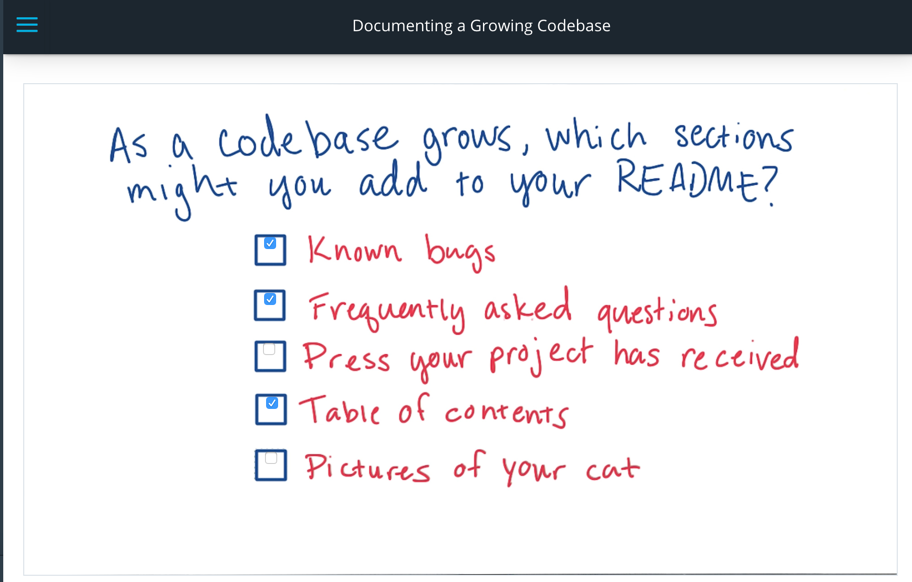 Documenting a Growing Codebase
As a codebase grows, which sections
might you add to your README?
Known bugs
Frequently asked questions
Press your project has received
Table of contents
Pictures of your cat